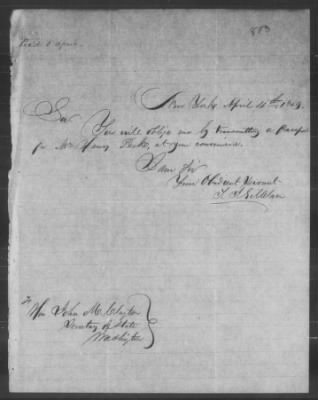 New York April 4th, 1849.
Sir
You will oblige me by transmitting a Passport
for Mr Henry at your convenience.
I am Sir
Your Obedient Servant
To
Hon John M. Clayton
Secretary of State
Washington